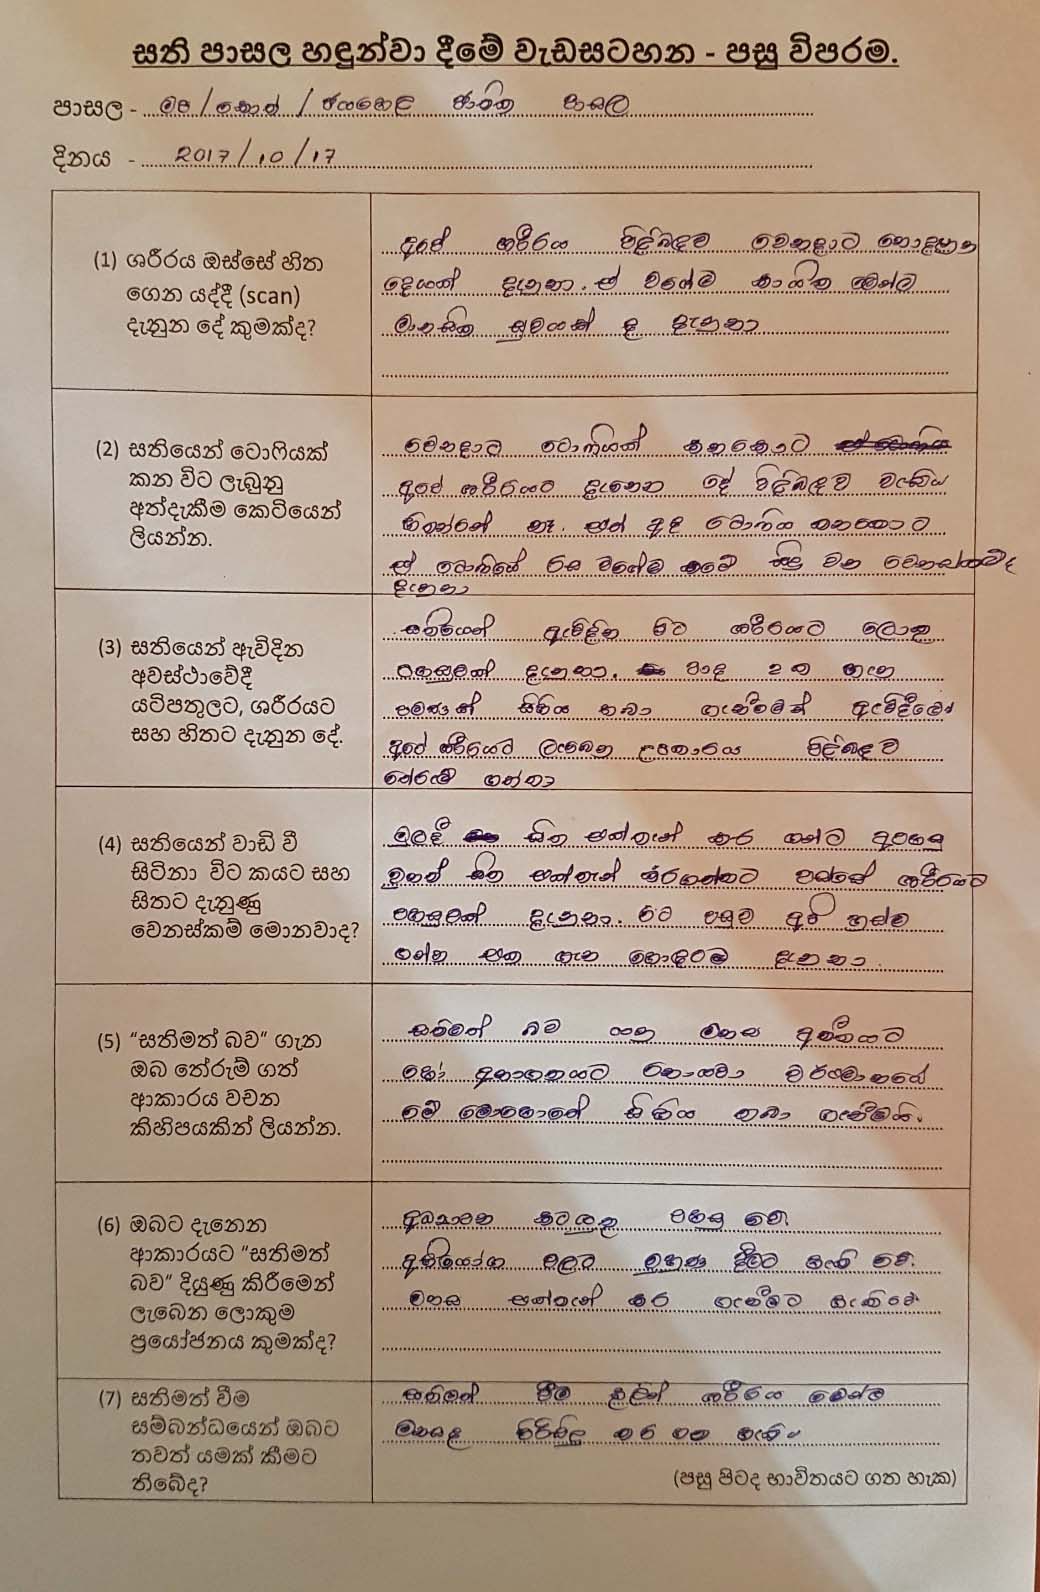 සති පාසල හඳුන්වා දීමේ වැඩසටහන - පසු විපරම.
පාසල - බප/හෝ/ජයවර්ධන ජාතික පාසල
දිනය - 2017/10/17
(1) ශරීරය ඔස්සේ හිත
ගෙන යද්දී (scan)
දැනුන දේ කුමක්ද?
අපේ ශරීරය පිළිබඳව වෙනදාට නොදැනුන
දෙයක් දැනුනා. ඒ වගේම කායික මෙන්ම
මානසික සුවයක් ද දැනුනා
(2) සතියෙන් ටොෆියක්
කන විට ලැබුනු
අත්දැකීම කෙටියෙන්
ලියන්න.
වෙනදාට ටොෆියක් කනකොට
අපේ ශරීරයට දැනෙන දේ පිළිබඳව වැඩිය
හිතන්නේ නෑ. එත් අද ටොෆිය කනකොට
ඒ ටොෆියේ රස වගේම කටේ සිදු වන වෙනස්කම්ද
දැනුනා
(3) සතියෙන් ඇවිදින
අවස්ථාවේදී
යටිපතුලට, ශරීරයට
සහ හිතට දැනුන දේ.
සතියෙන් ඇවිදින විට ශරීරයට ලොකු
පහසුවක් දැනුනා. පාද 2ක ගැන
පමණක් සිහිය තබා ගැනීමෙන් ඇවිදීමේ
අපේ ශරීරයට ලැබෙන උපකාරය පිළිබඳව
තේරුම් ගත්තා
(4) සතියෙන් වාඩි වී
සිටිනා විට කයට සහ
සිතට දැනුණු
වෙනස්කම් මොනවාද?
මුලදී සිත එක්තැන් කර ගන්ට අපහසු
වුනත් සිත එක්තැන් කරගත්තට පස්සේ ශරීරයට
පහසුවක් දැනුනා. ඊට පසුව අපි හුස්ම
ගන්න එක ගැන හොඳටම දැනුනා.
(5) “සතිමත් බව” ගැන
ඔබ තේරුම් ගත්
ආකාරය වචන
කිහිපයකින් ලියන්න.
සතිමත් බව යනු මනස අතීතයට
හෝ අනාගතයට නොයවා වර්තමානයේ
මේ මොහොතේ සිහිය තබා ගැනීමයි.
(6) ඔබට දැනෙන
ආකාරයට “සතිමත්
බව” දියුණු කිරීමෙන්
ලැබෙන ලොකුම
ප්‍රයෝජනය කුමක්ද?
අධ්‍යාපන කටයුතු පහසු වේ.
අභියෝග වලට මුහුණ දීමට හැකි වේ.
මනස එක්තැන් කර ගැනීමට හැකිවේ
(7) සතිමත් වීම
සම්බන්ධයෙන් ඔබට
තවත් යමක් කීමට
තිබේද?
සතිමත් වීම තුළින් ශරීරය මෙන්ම
මනසද පිරිසිදු කර ගත හැකිය
(පසු පිටද භාවිතයට ගත හැක)